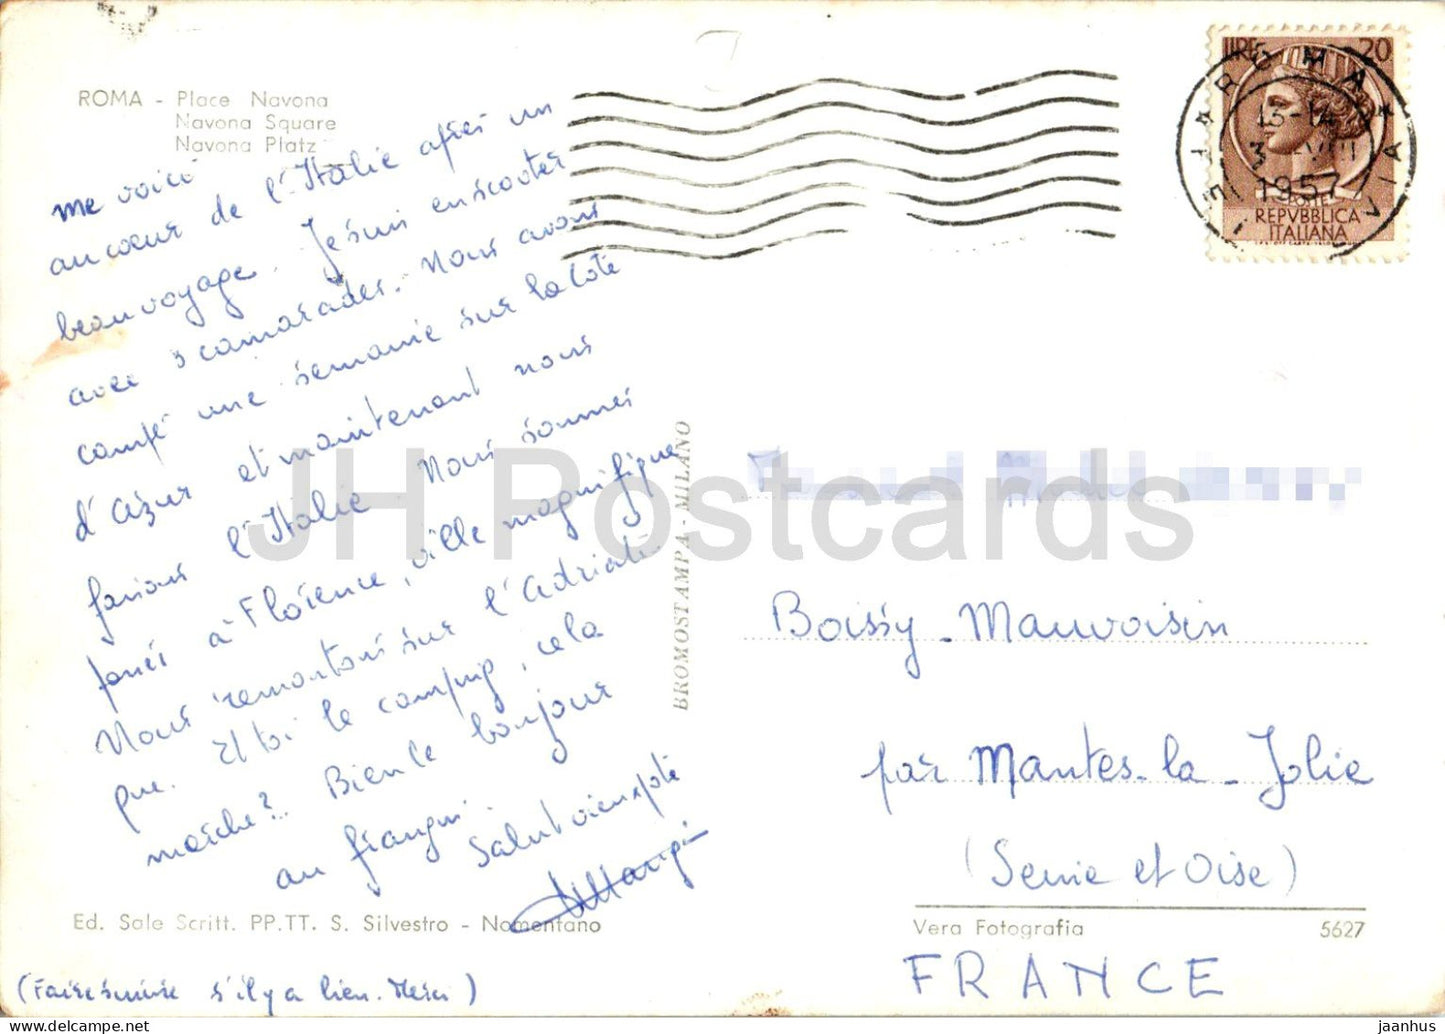 ROMA - Place Navona
Navona Square
Navona Platz
me voici
au cœur de l'Italie après un
beau voyage. Je suis en scooter
avec 3 camarades. Nous avons
campé une semaine sur la Côte
d'Azur et maintenant nous
faisons l'Italie. Nous sommes
passés à Florence, ville magnifique
Nous remontons sur l'Adriati-
que. Et toi le camping, cela
marche? Bien le bonjour
au frangin. Salut vieux pote
Ed. Sale Scritt. PP.TT. S. Silvestro - Nomentano
(Faire suivre s'il y a lieu. Merci)
BROMOSTAMPA - MILANO
LIRE 20
ROMA
13-14
3 VIII
1957
POSTE
REPVBBLICA
ITALIANA
Boissy-Mauvoisin
par Mantes-la-Jolie
(Seine et Oise)
Vera Fotografia 5627
FRANCE
JH Postcards
jaanhus